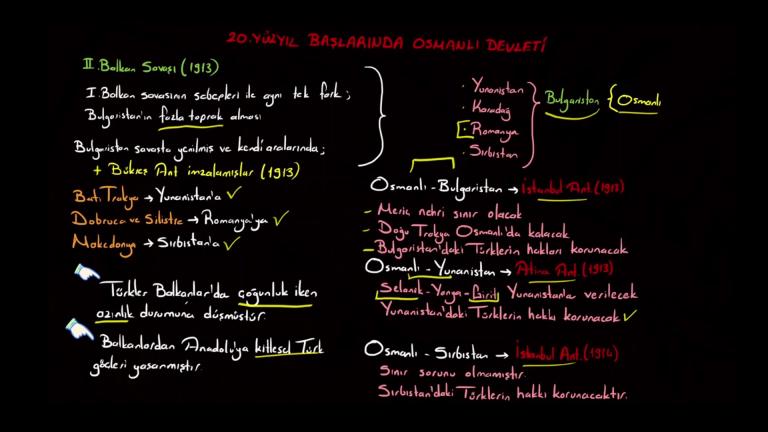 20.YÜZYIL BAŞLARINDA OSMANLI DEVLETİ
II.Balkan Savaşı (1913)
I.Balkan savaşının sebepleri ile aynı tek fark;
Bulgaristan'ın fazla toprak alması
Bulgaristan savaşta yenilmiş ve kendi aralarında;
+ Bükreş Ant imzalamışlar (1913)
Batı Trakya → Yunanistan'a ✓
Dobruca ve Silistre → Romanya'ya ✓
Makedonya → Sırbistan'a ✓
Türkler Balkanlar'da çoğunluk iken
azınlık durumuna düşmüştür.
Balkanlardan Anadolu'ya kitlesel Türk
göçleri yaşanmıştır
· Yunanistan
· Karadağ
· Romanya
· Sırbistan
Bulgaristan
Osmanlı
Osmanlı - Bulgaristan → İstanbul Ant.(1913)
- Meriç nehri sınır olacak
- Doğu Trakya Osmanlı'da kalacak
- Bulgaristan'daki Türklerin hakları korunacak
Osmanlı - Yunanistan → Atina Ant.(1913)
Selanik - Yanya - Girit Yunanistan'a verilecek
Yunanistan'daki Türklerin hakkı korunacak ✓
Osmanlı - Sırbistan → İstanbul Ant.(1914)
Sınır sorunu olmamıştır.
Sırbistan'daki Türklerin hakkı korunacaktır.